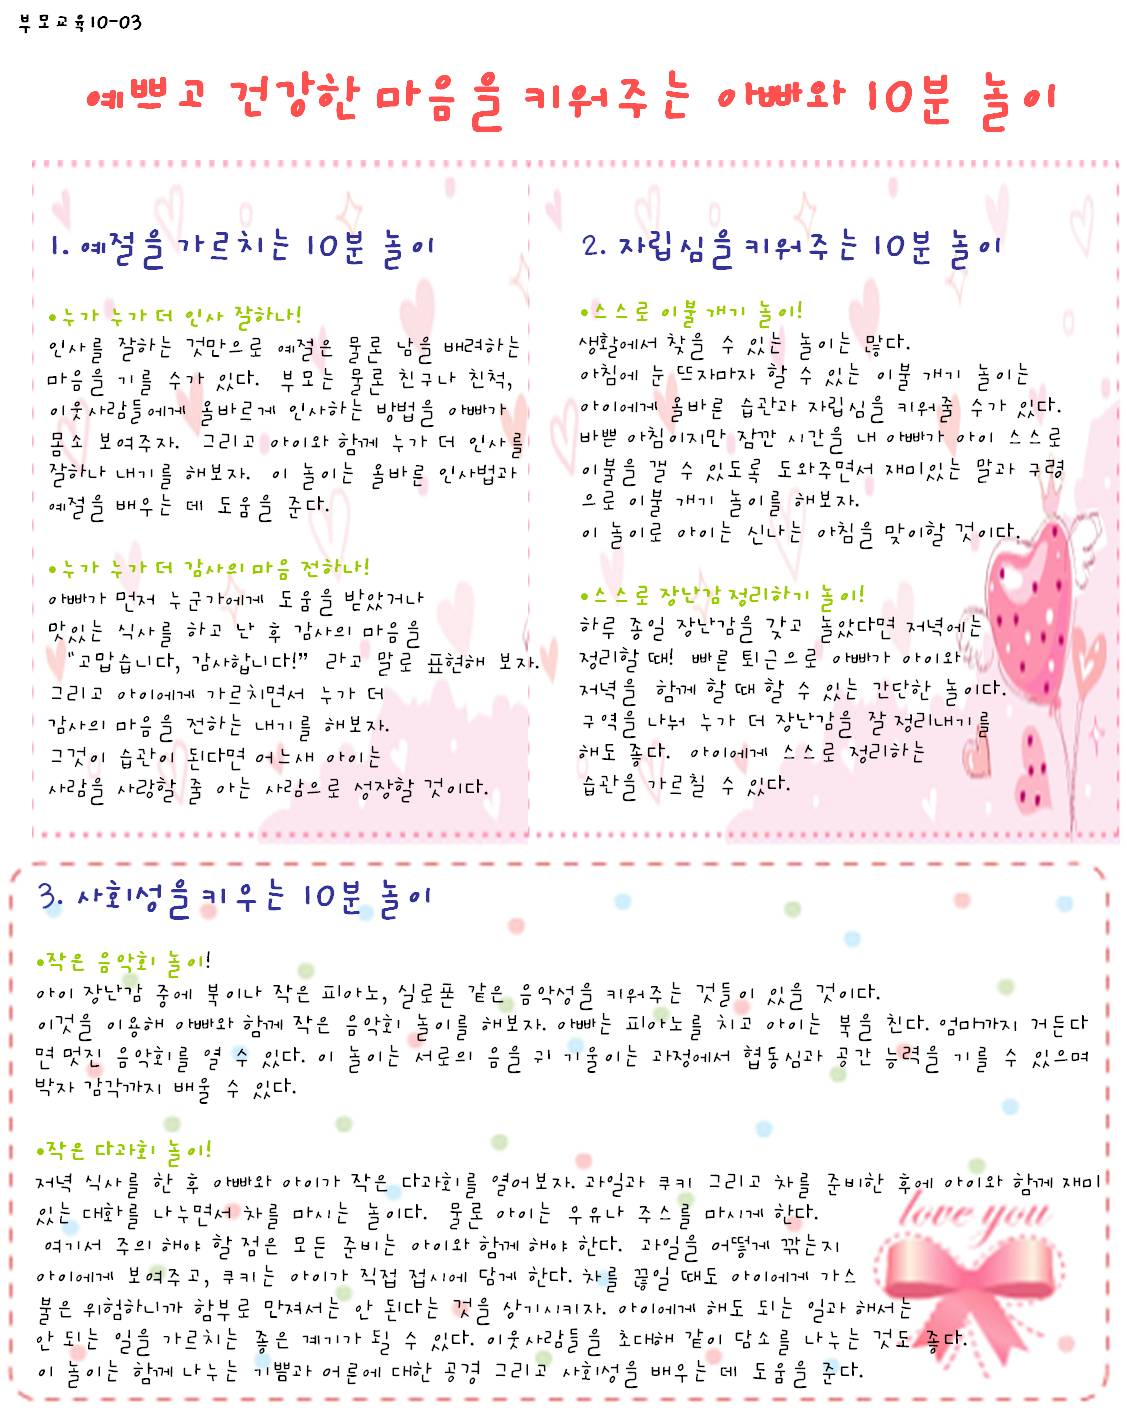 부모교육10-03
예쁘고 건강한 마음을 키워주는 아빠와 10분 놀이
1. 예절을 가르치는 10분 놀이
•누가 누가 더 인사 잘하나!
인사를 잘하는 것만으로 예절은 물론 남을 배려하는
마음을 기를 수가 있다. 부모는 물론 친구나 친척,
이웃사람들에게 올바르게 인사하는 방법을 아빠가
몸소 보여주자. 그리고 아이와 함께 누가 더 인사를
잘하나 내기를 해보자. 이 놀이는 올바른 인사법과
예절을 배우는 데 도움을 준다.
•누가 누가 더 감사의 마음 전하나!
아빠가 먼저 누군가에게 도움을 받았거나
맛있는 식사를 하고 난 후 감사의 마음을
"고맙습니다, 감사합니다!" 라고 말로 표현해 보자.
그리고 아이에게 가르치면서 누가 더
감사의 마음을 전하는 내기를 해보자.
그것이 습관이 된다면 어느새 아이는
사람을 사랑할 줄 아는 사람으로 성장할 것이다.
2. 자립심을 키워주는 10분 놀이
•스스로 이불 개기 놀이!
생활에서 찾을 수 있는 놀이는 많다.
아침에 눈 뜨자마자 할 수 있는 이불 개기 놀이는
아이에게 올바른 습관과 자립심을 키워줄 수가 있다.
바쁜 아침이지만 잠깐 시간을 내 아빠가 아이 스스로
이불을 갤 수 있도록 도와주면서 재미있는 말과 구령
으로 이불 개기 놀이를 해보자.
이 놀이로 아이는 신나는 아침을 맞이할 것이다.
•스스로 장난감 정리하기 놀이!
하루 종일 장난감을 갖고 놀았다면 저녁에는
정리할 때! 빠른 퇴근으로 아빠가 아이와
저녁을 함께 할 때 할 수 있는 간단한 놀이다.
구역을 나눠 누가 더 장난감을 잘 정리내기를
해도 좋다. 아이에게 스스로 정리하는
습관을 가르칠 수 있다.
3. 사회성을 키우는 10분 놀이
•작은 음악회 놀이!
아이 장난감 중에 북이나 작은 피아노, 실로폰 같은 음악성을 키워주는 것들이 있을 것이다.
이것을 이용해 아빠와 함께 작은 음악회 놀이를 해보자. 아빠는 피아노를 치고 아이는 북을 친다. 엄마까지 거든다
면 멋진 음악회를 열 수 있다. 이 놀이는 서로의 음을 귀 기울이는 과정에서 협동심과 공간 능력을 기를 수 있으며
박자 감각까지 배울 수 있다.
•작은 다과회 놀이!
저녁 식사를 한 후 아빠와 아이가 작은 다과회를 열어보자. 과일과 쿠키 그리고 차를 준비한 후에 아이와 함께 재미
있는 대화를 나누면서 차를 마시는 놀이다. 물론 아이는 우유나 주스를 마시게 한다.
여기서 주의 해야 할 점은 모든 준비는 아이와 함께 해야 한다. 과일을 어떻게 깎는지
아이에게 보여주고, 쿠키는 아이가 직접 접시에 담게 한다. 차를 끓일 때도 아이에게 가스
불은 위험하니까 함부로 만져서는 안 된다는 것을 상기시키자. 아이에게 해도 되는 일과 해서는
안 되는 일을 가르치는 좋은 계기가 될 수 있다. 이웃사람들을 초대해 같이 담소를 나누는 것도 좋다.
이 놀이는 함께 나누는 기쁨과 어른에 대한 공경 그리고 사회성을 배우는 데 도움을 준다.
love you